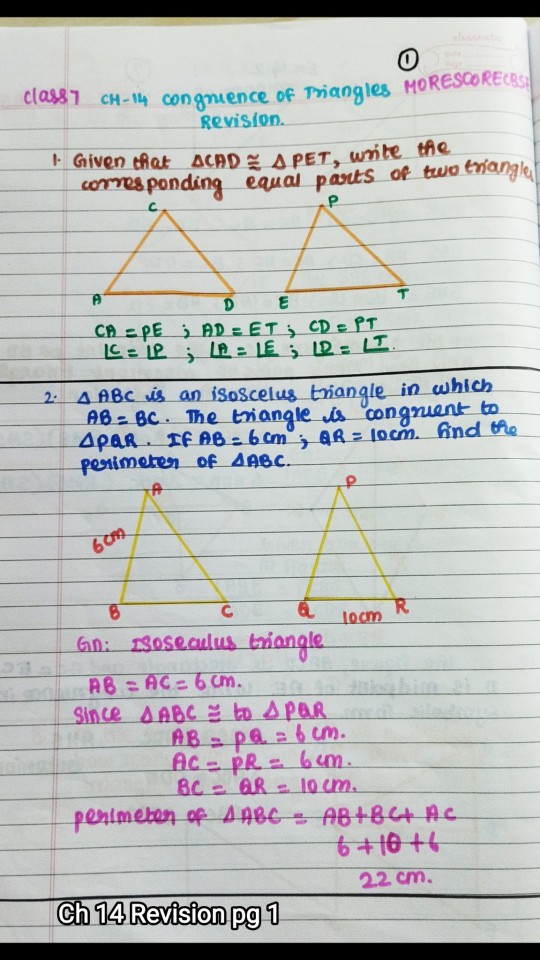 ①
Class 7 CH-14 congruence of Triangles MORESCORECBSE
Revision.
1. Given that △CAD ≅ △PET, write the
corresponding equal parts of two triangles
C
P
A
D
E
T
CA = PE ; AD = ET ; CD = PT
∠C = ∠P ; ∠A = ∠E ; ∠D = ∠T.
2. △ABC is an isoscelus triangle in which
AB = BC. The triangle is congruent to
△PQR. If AB = 6cm ; QR = 10cm. find the
perimeter of △ABC.
A
P
6cm
B
C
Q
10cm
R
Gn: Isoseculus triangle
AB = AC = 6cm.
Since △ABC ≅ to △PQR
AB = PQ = 6cm.
AC = PR = 6cm.
BC = QR = 10cm.
perimeter of △ABC = AB+BC+AC
6+10+6
22cm.
Ch 14 Revision pg 1